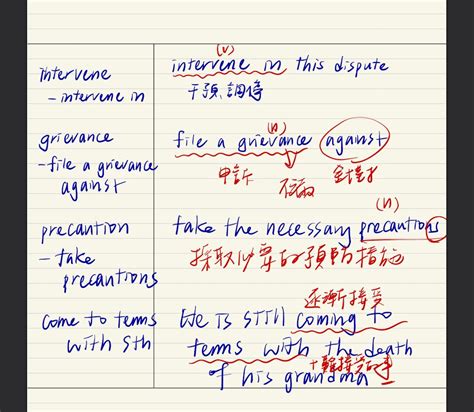 intervene
- intervene in
(v)
intervene in this dispute
干預,調停
grievance
- file a grievance
against
(n)
file a grievance against
申訴 針對
precaution
- take
precautions
(n)
take the necessary precautions
採取必要的預防措施
come to terms
with sth
逐漸接受
We is still coming to
terms with the death
of his grandma